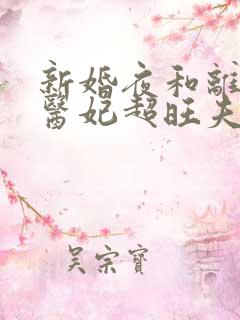 新婚夜和離
醫妃超旺夫
吴宗寶